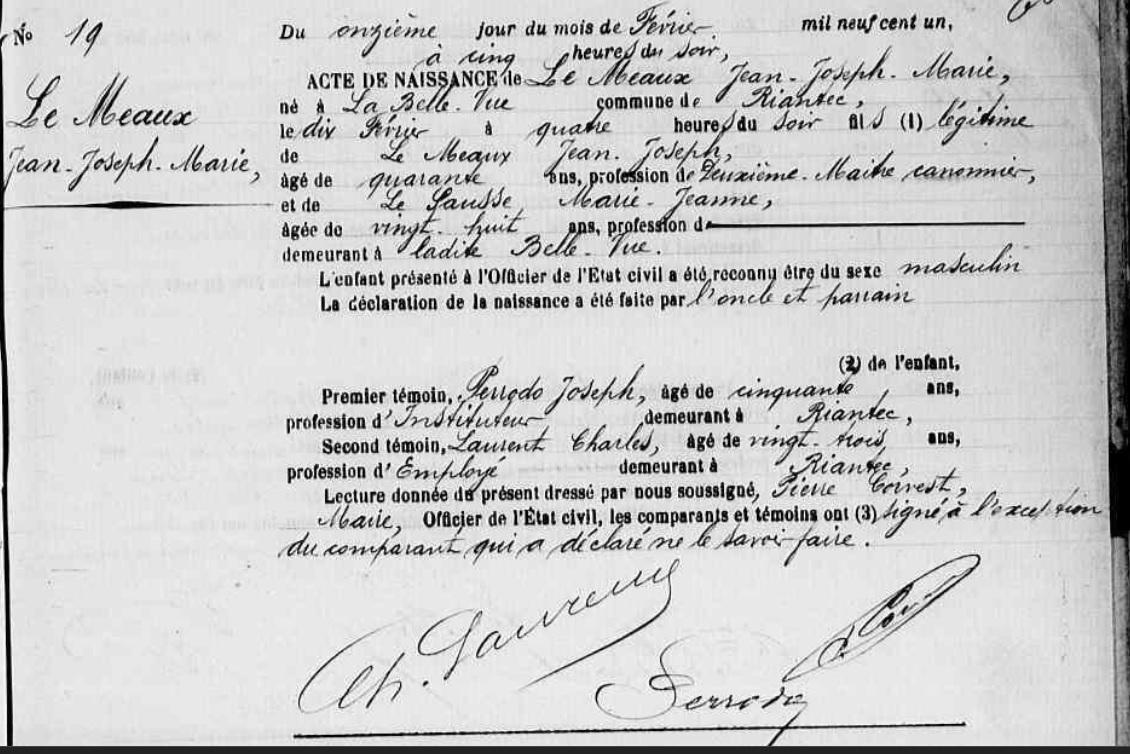 N° 19
Du onzième jour du mois de Février mil neuf cent un,
à cinq heures du soir,
ACTE DE NAISSANCE de Le Meaux Jean-Joseph-Marie,
Le Meaux
Jean-Joseph-Marie,
né à La Belle-Vue commune de Riantec,
le dix Février à quatre heures du soir fils (1) légitime
de Le Meaux Jean-Joseph,
âgé de quarante ans, profession de Deuxième-Maître canonnier,
et de Le Sausse Marie-Jeanne,
âgée de vingt-huit ans, profession d
demeurant à ladite Belle-Vue.
L'enfant présenté à l'Officier de l'Etat civil a été reconnu être du sexe masculin
La déclaration de la naissance a été faite par l'oncle et parrain
(2) de l'enfant,
Premier témoin, Perrodo Joseph, âgé de cinquante ans,
profession d'Instituteur demeurant à Riantec,
Second témoin, Laurent Charles, âgé de vingt-trois ans,
profession d'Employé demeurant à Riantec,
Lecture donnée du présent dressé par nous soussigné, Pierre Corvest,
Maire, Officier de l'État civil, les comparants et témoins ont (3) signé à l'exception
du comparant qui a déclaré ne le savoir faire.
Ch. Laurent
Perrodo